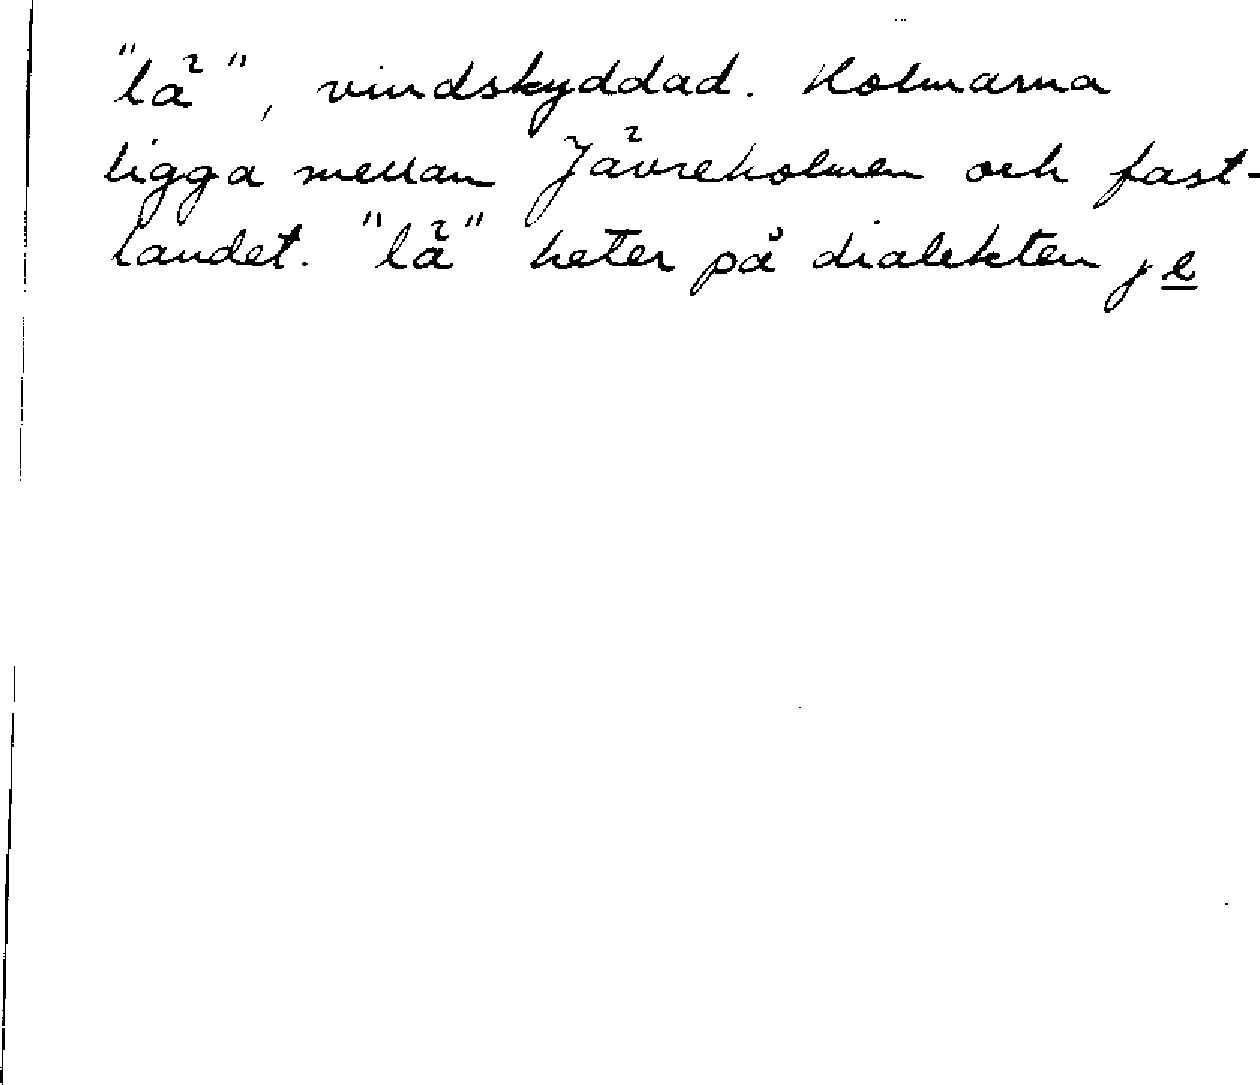 "lä", vindskyddad. Holmarna
ligga mellan Jävreholmen och fast-
landet. "lä" heter på dialekten je